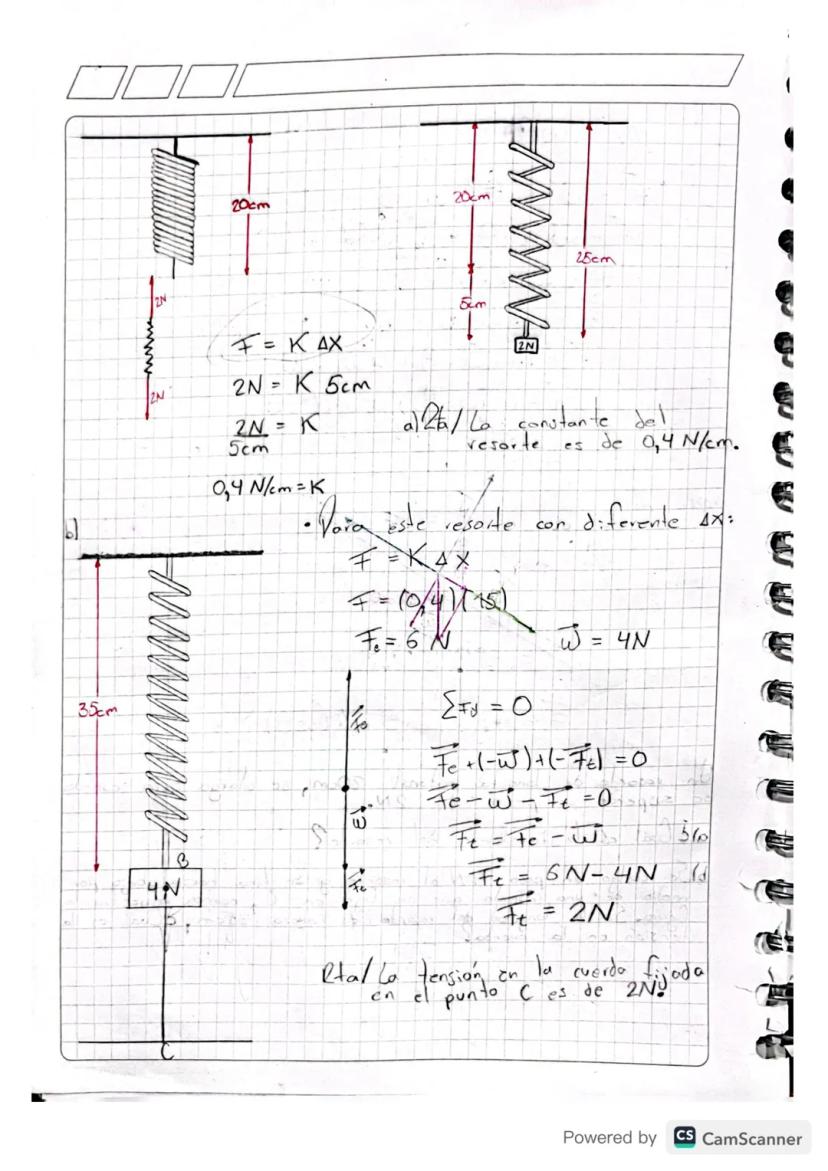 20cm
20cm
25cm
5cm
2N
2N
2N
F = K ΔX
2N = K 5cm
2N/5cm = K
0,4 N/cm = K
a) Rta/ La constante del
resorte es de 0,4 N/cm.
b)
• Para este resorte con diferente ΔX:
F = K ΔX
F = (0,4)(15)
Fe = 6 N
w⃗ = 4N
35cm
B
4N
C
Fe⃗
w⃗
Ft⃗
ΣFy = 0
Fe⃗ + (-w⃗) + (-Ft⃗) = 0
Fe⃗ - w⃗ - Ft⃗ = 0
Ft⃗ = Fe⃗ - w⃗
Ft⃗ = 6N - 4N
Ft⃗ = 2N
Rta/ La tensión en la cuerda fijada
en el punto C es de 2N.
Powered by CS CamScanner